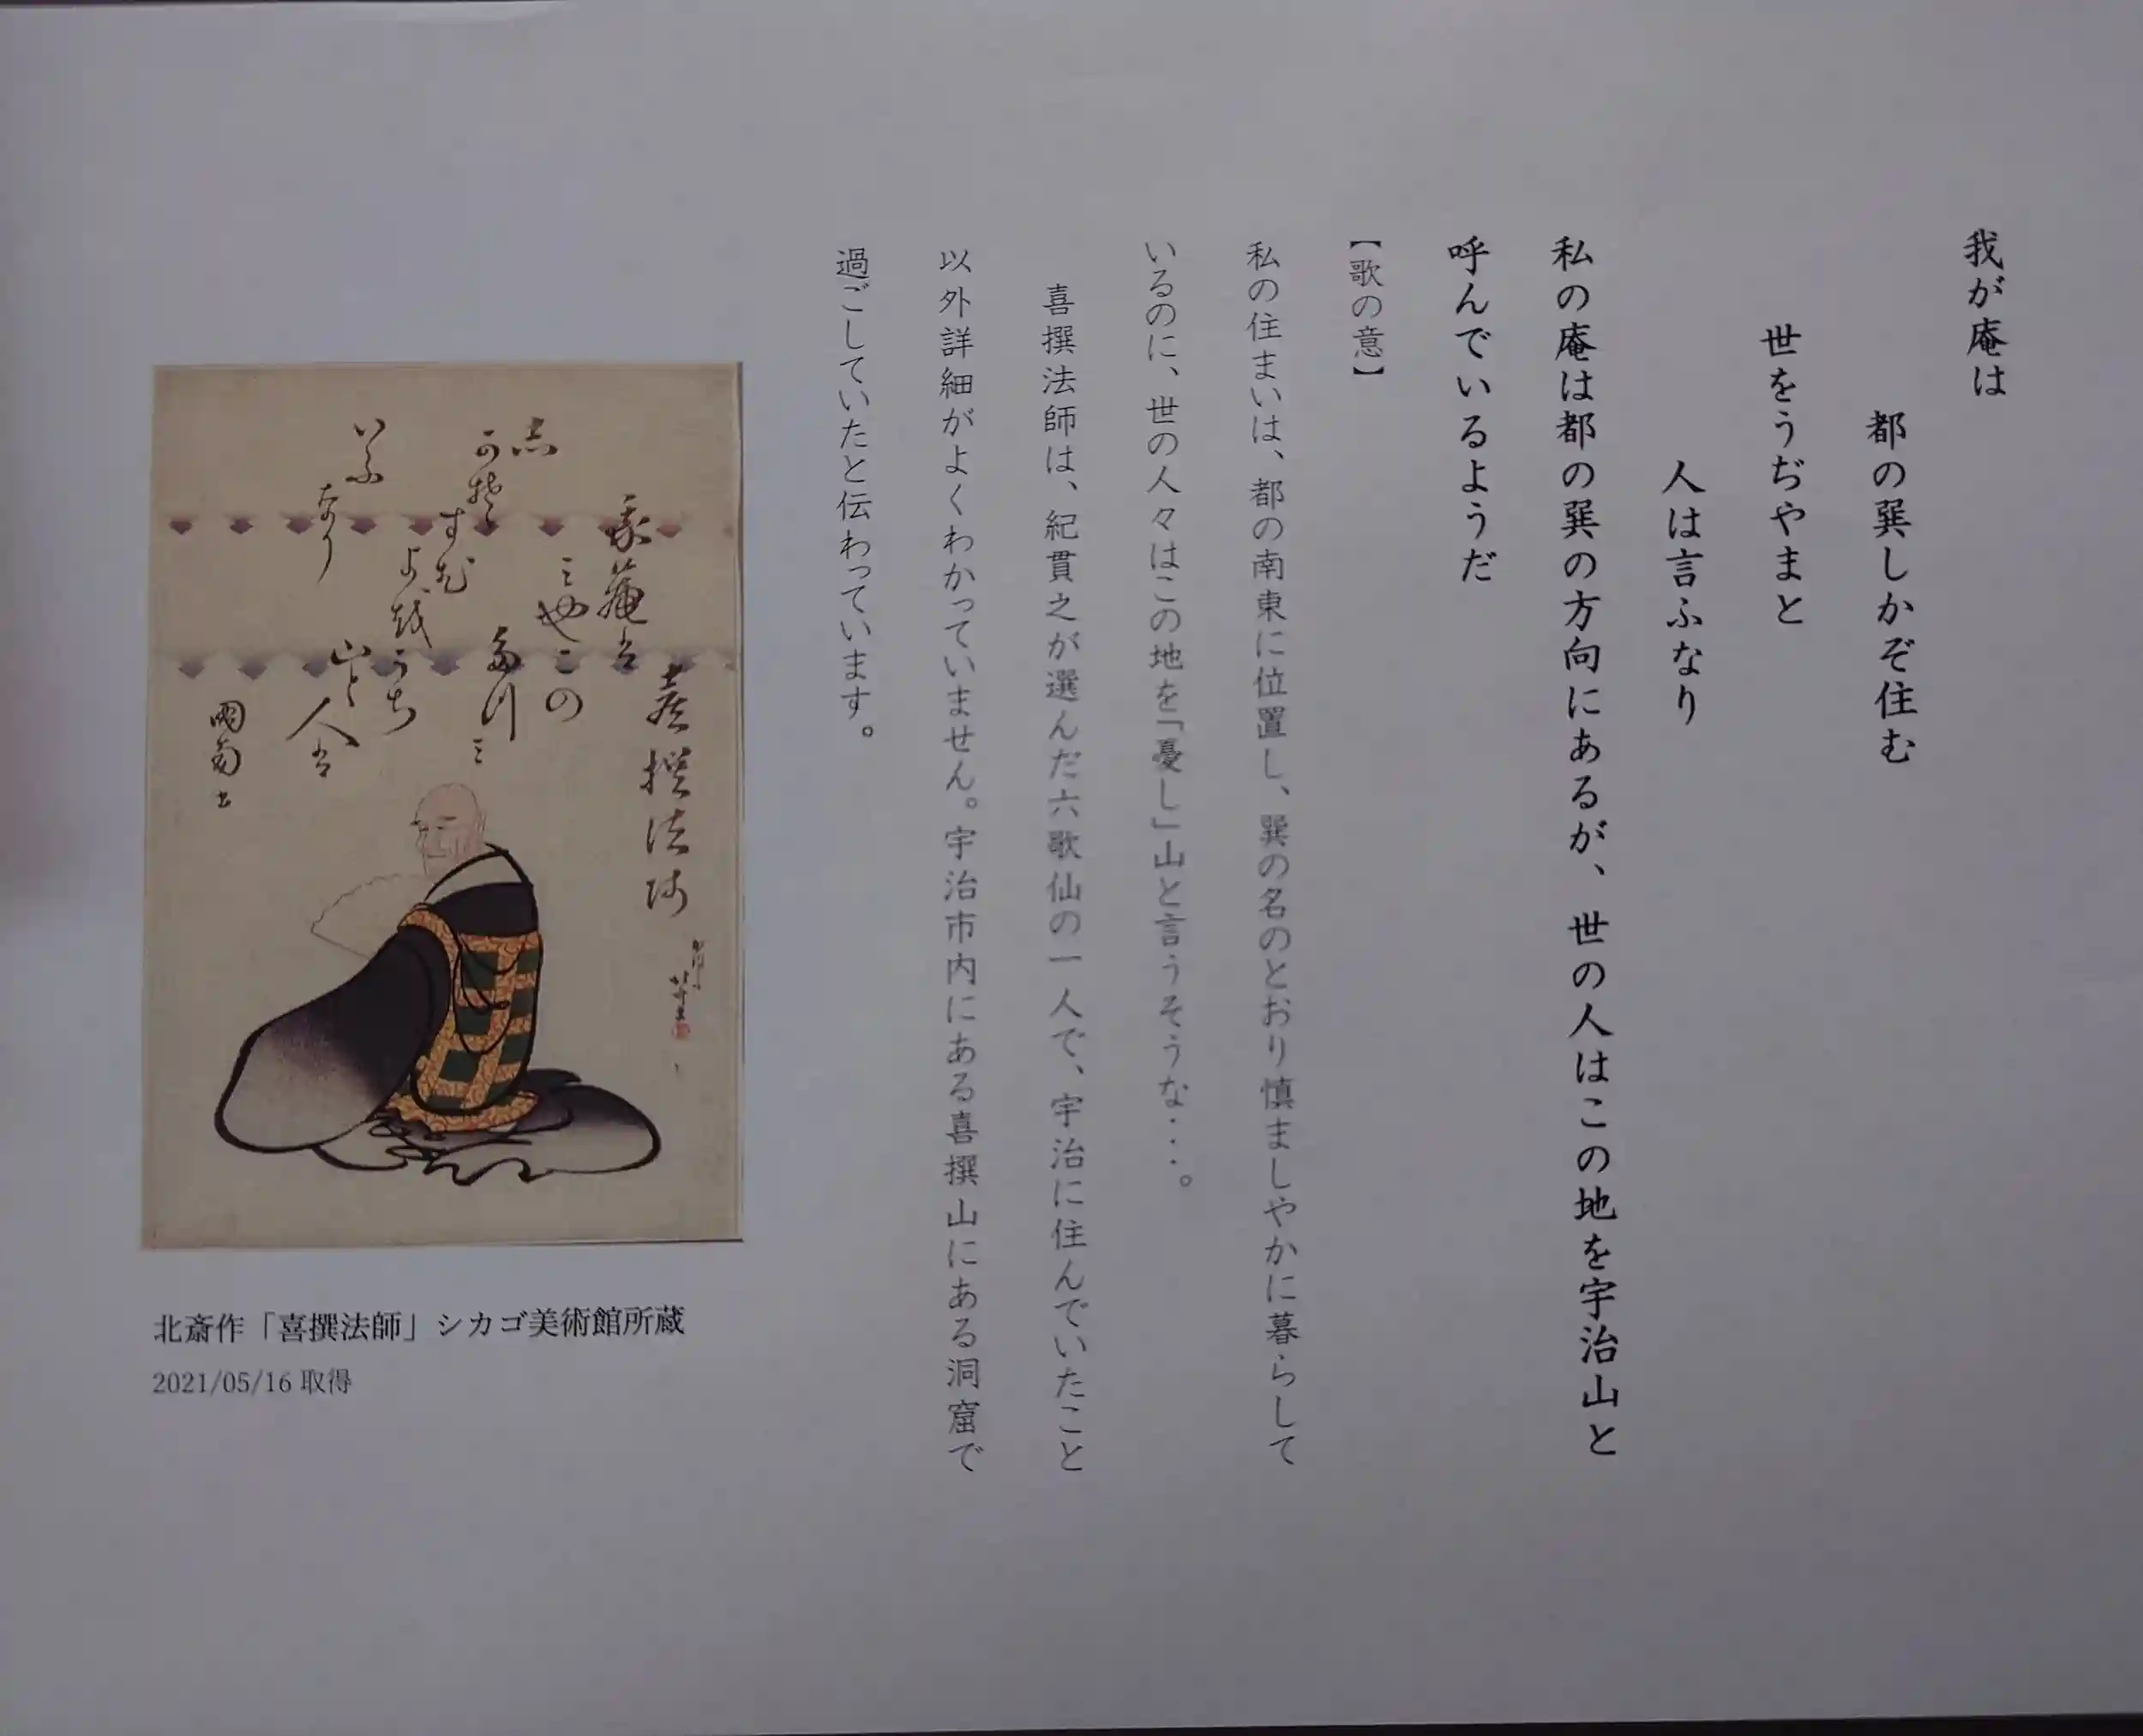 我が庵は
都の巽しかぞ住む
世をうぢやまと
人は言ふなり
私の庵は都の巽の方向にあるが、世の人はこの地を宇治山と
呼んでいるようだ
【歌の意】
私の住まいは、都の南東に位置し、巽の名のとおり慎ましやかに暮らして
いるのに、世の人々はこの地を「憂し」山と言うそうな・・・。
喜撰法師は、紀貫之が選んだ六歌仙の一人で、宇治に住んでいたこと
以外詳細がよくわかっていません。宇治市内にある喜撰山にある洞窟で
過ごしていたと伝わっています。
喜撰法師
我菴は
ミやこの
たつミ
志
可そ
すむ
よを
うち
山と
人は
いふ
なり
北斎作「喜撰法師」シカゴ美術館所蔵
2021/05/16 取得